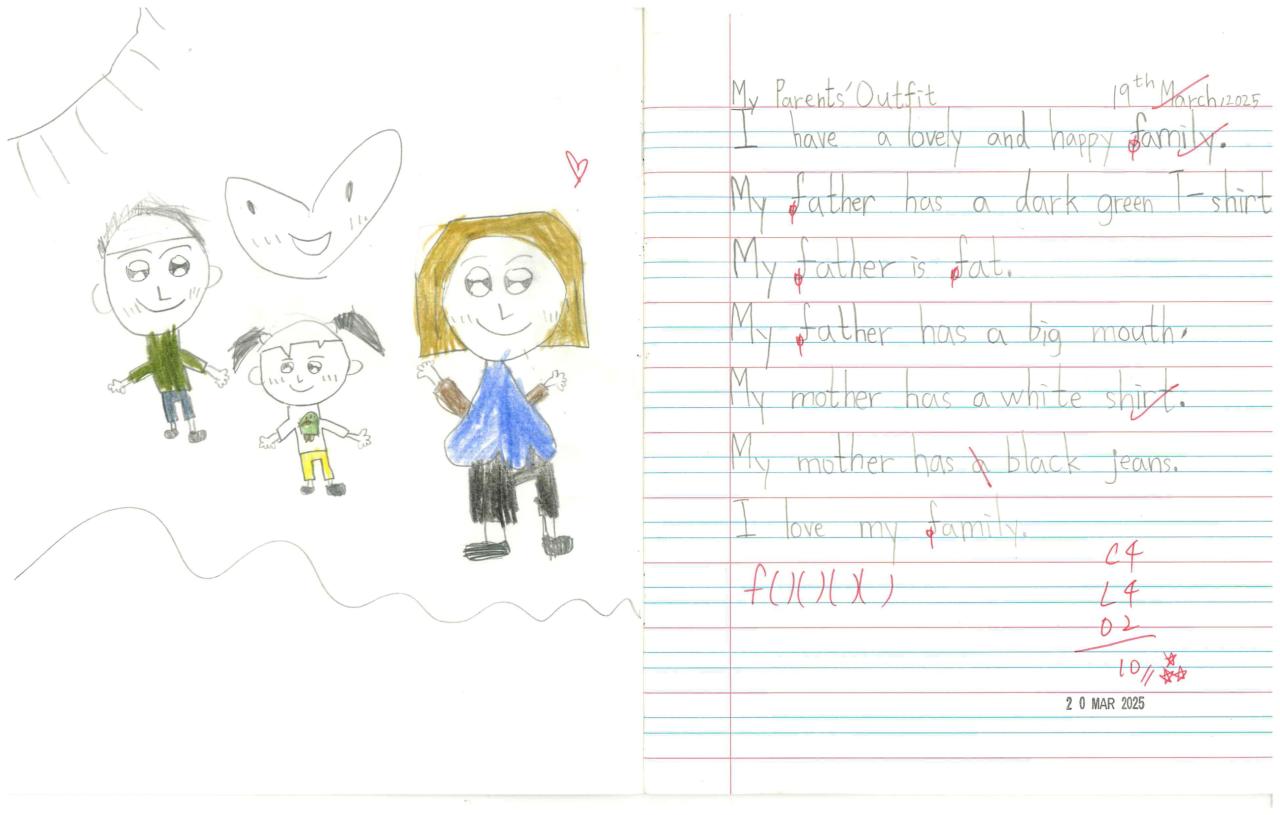 My Parents' Outfit 19th March, 2025
I have a lovely and happy family.
My father has a dark green T-shirt
My father is fat.
My father has a big mouth.
My mother has a white shirt.
My mother has a black jeans.
I love my family.
f()()()()
C4
L4
O2
10//
20 MAR 2025